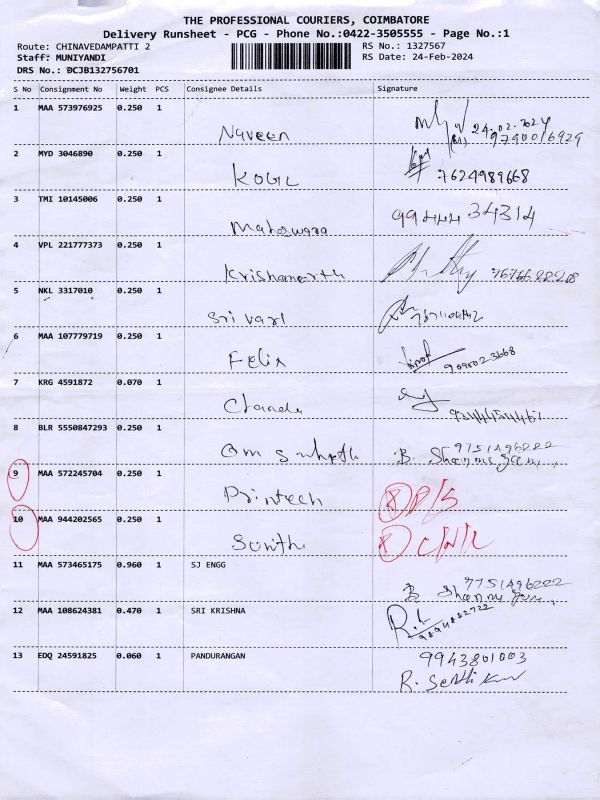 THE PROFESSIONAL COURIERS, COIMBATORE
Delivery Runsheet - PCG - Phone No.:0422-3505555 - Page No.:1
Route: CHINAVEDAMPATTI 2 RS No.: 1327567
Staff: MUNIYANDI RS Date: 24-Feb-2024
DRS No.: DCJB132756701
S No Consignment No Weight PCS Consignee Details Signature
1 MAA 573976925 0.250 1 Naveen 24-02-2024
9740016929
2 MYD 3046890 0.250 1 KOGIL 7624989668
3 TMI 10145006 0.250 1 Maheswara 99444 34314
4 VPL 221777373 0.250 1 Krishamorth
5 NKL 3317010 0.250 1 Sri vari
6 MAA 107779719 0.250 1 Felix
7 KRG 4591872 0.070 1
8 BLR 5550847293 0.250 1 Om 9751496222
B.
9 MAA 572245704 0.250 1 Printech D/S
10 MAA 944202565 0.250 1 Sunith C/N/L
11 MAA 573465175 0.960 1 SJ ENGG 7751496222
B
12 MAA 108624381 0.470 1 SRI KRISHNA
13 EDQ 24591825 0.060 1 PANDURANGAN 9943801003
R. Senthil